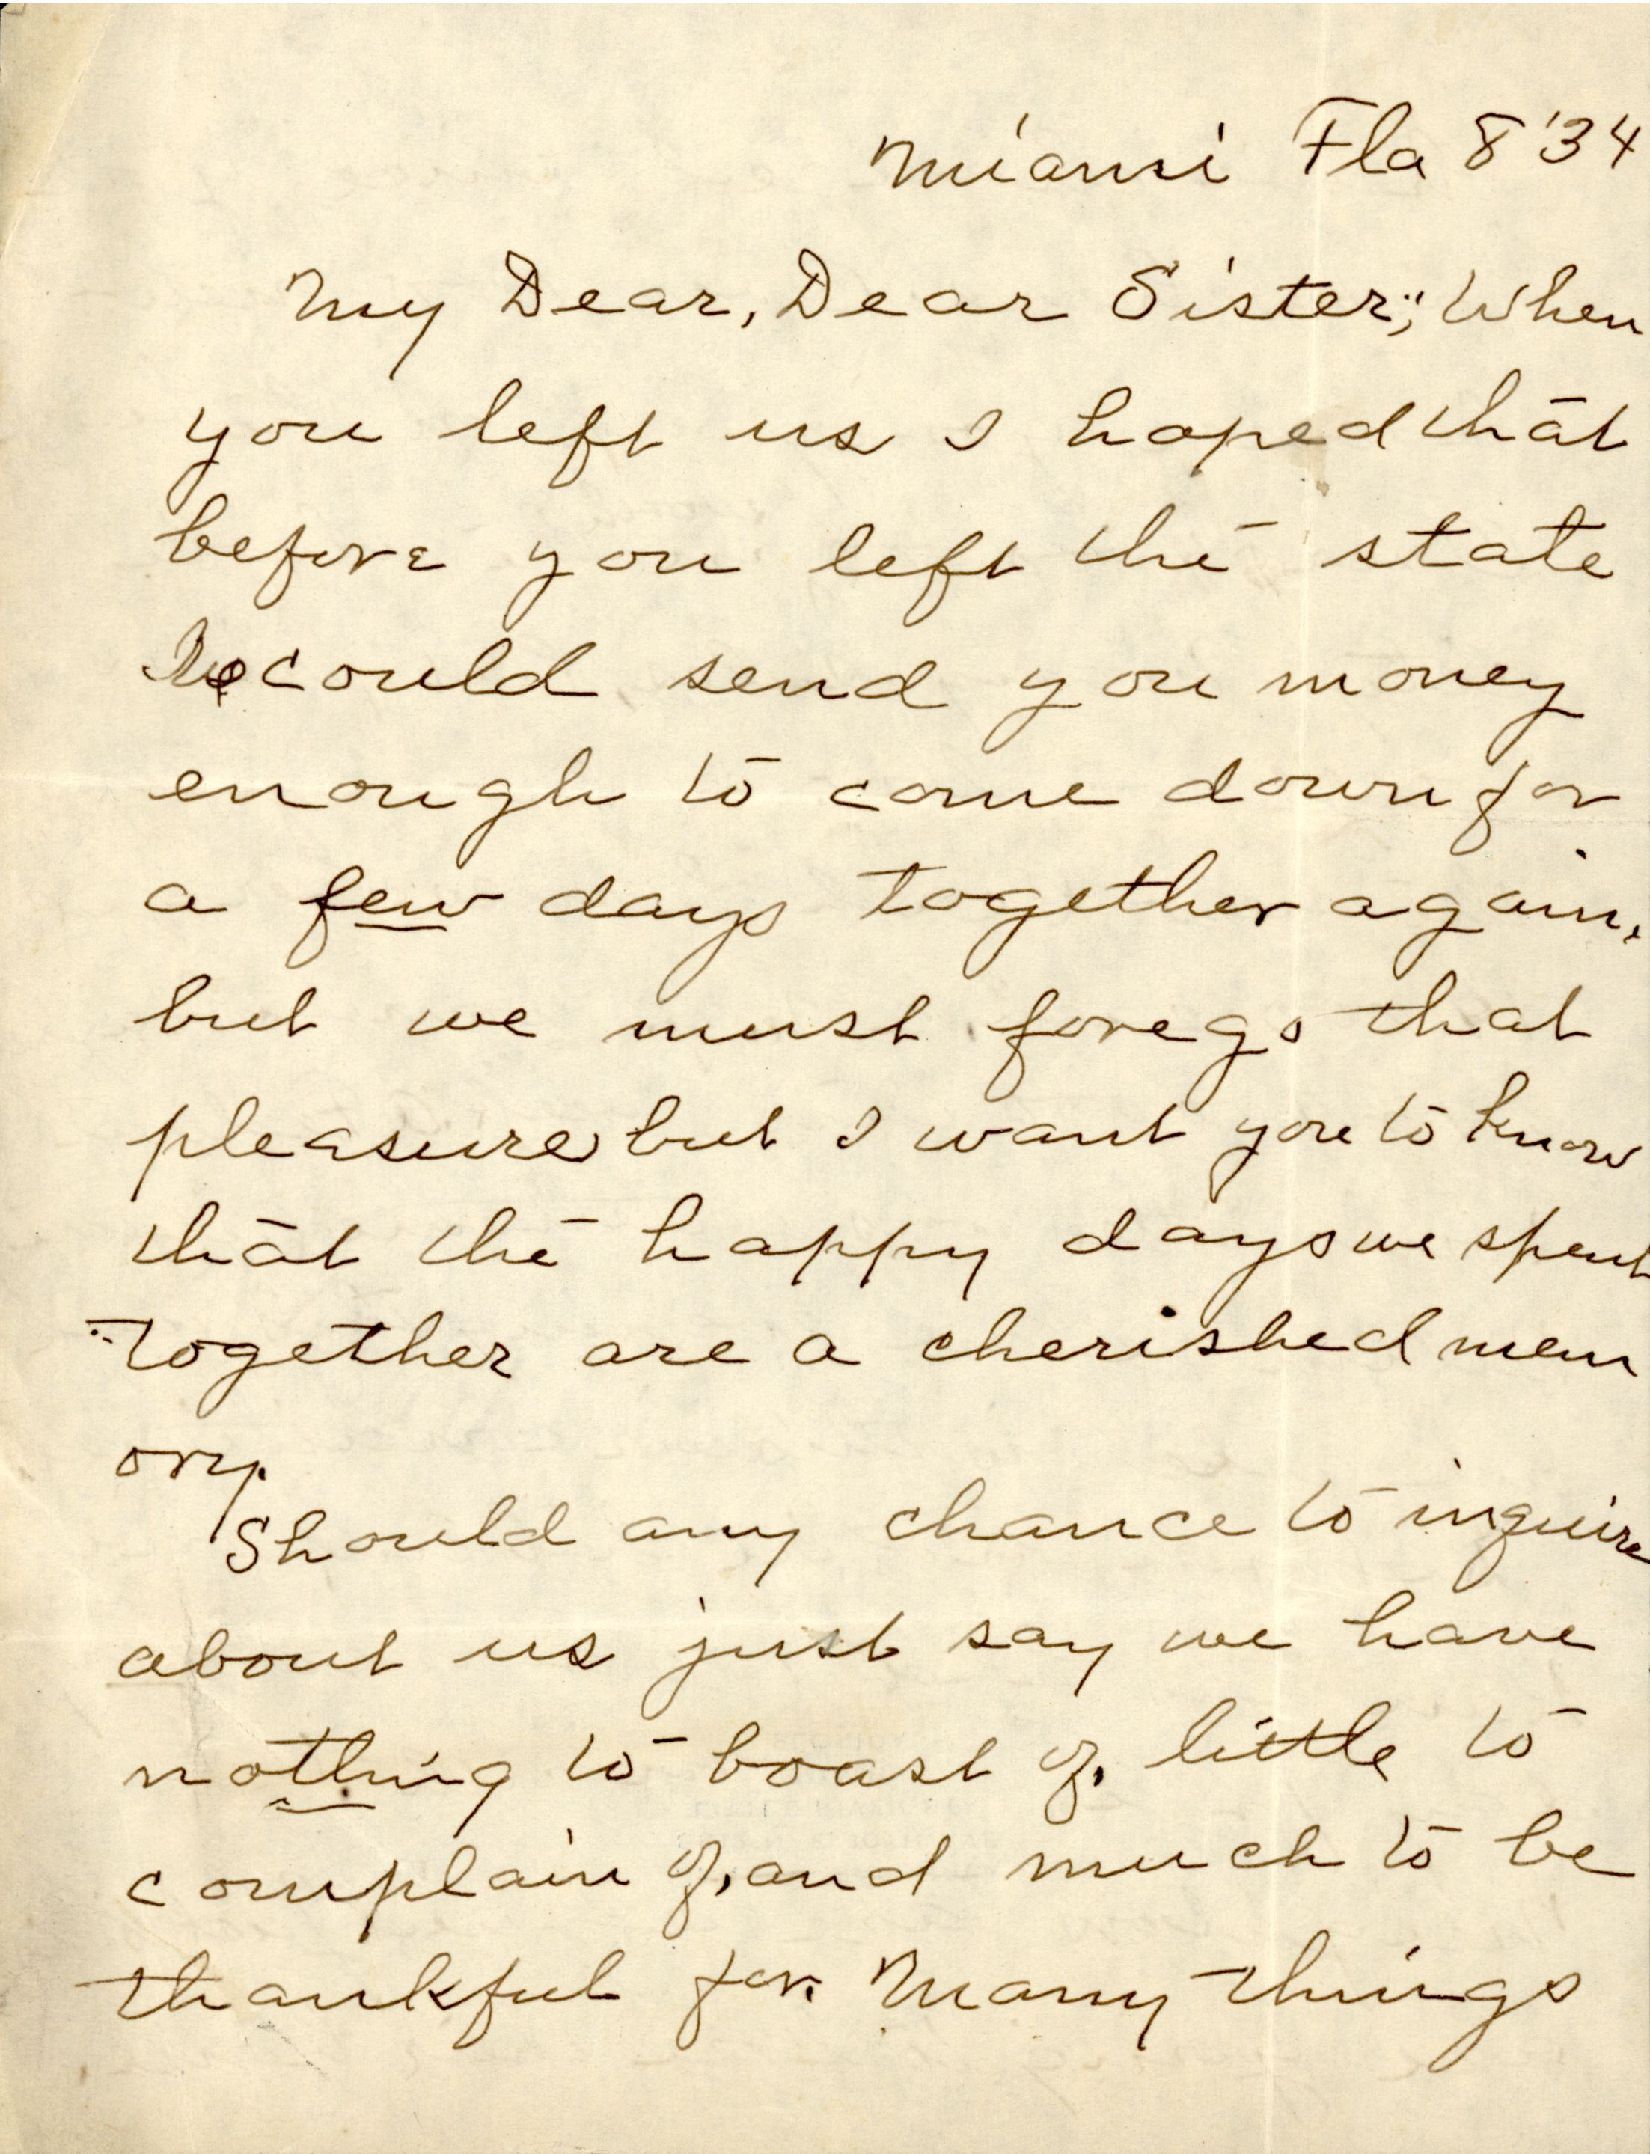 Miami Fla 8 '34
My Dear, Dear Sister; When
you left us I hoped that
before you left the state
we could send you money
enough to come down for
a few days together again,
but we must forego that
pleasure but I want you to know
that the happy days we spent
together are a cherished mem
ory.
Should any chance to inquire
about us just say we have
nothing to boast of, little to
complain of, and much to be
thankful for. Many things